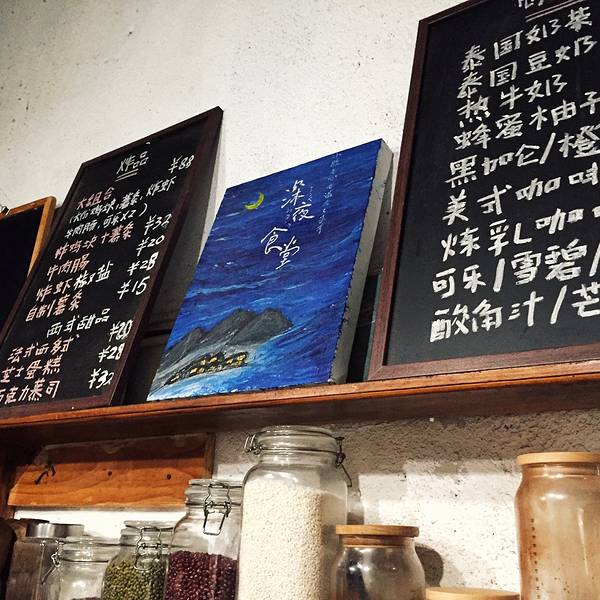 炸品
大组合 ¥88
牛肉肠,可乐X2)
炸鸡块+薯条 ¥32
牛肉肠 ¥20
炸虾椒盐 ¥28
自制薯条 ¥15
西式甜品
法式西多士 ¥20
芝士蛋糕 ¥28
巧克力慕司 ¥32
深夜
食堂
泰国奶茶
泰国豆奶
热牛奶
蜂蜜柚子
黑加仑/橙
美式咖啡
炼乳咖
可乐/雪碧/
酸角汁/芒